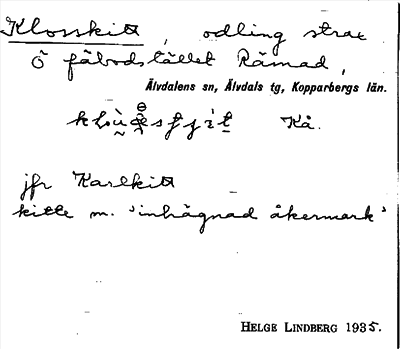 Klosskitt, odling strax
Ö fäbodstället Råmad,
Älvdalens sn, Älvdals tg, Kopparbergs län.
Kå.
jfr Karlkitt
kitte m. 'inhägnad åkermark'
HELGE LINDBERG 1935.